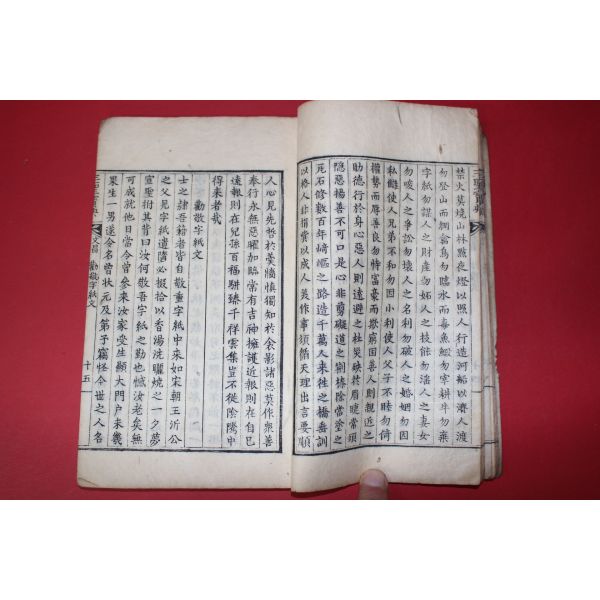 禁火莫燒山林點夜燈以照人行造河船以濟人渡
勿登山而網禽鳥勿臨水而毒魚鰕勿宰耕牛勿棄
字紙勿謀人之財產勿妬人之技能勿滛人之妻女
勿唆人之爭訟勿壞人之名利勿破人之婚姻勿因
私讎使人兄弟不和勿因小利使人父子不睦勿倚
權勢而辱善良勿恃富豪而欺窮困善人則親近之
助德行於身心惡人則遠避之杜災殃於眉睫常須
隱惡揚善不可口是心非剪礙道之荊榛除當塗之
瓦石修數百年崎嶇之路造千萬人來往之橋垂訓
以格人非捐貲以成人美作事須循天理出言要順
人心見先哲於羹墻慎獨知於衾影諸惡莫作衆善
奉行永無惡曜加臨常有吉神擁護近報則在自己
遠報則在兒孫百福駢臻千祥雲集豈不從陰隲中
得來者哉
勸敬字紙文
士之隷吾籍者皆自敬重字紙中來如宋朝王沂公
之父見字紙遺墜必掇拾以香湯洗曬燒之一夕夢
宣聖拊其背曰汝何敬吾字紙之勤也憾汝老矣無
可成就他日當令曾參來汝家受生顯大門户未幾
果生一男遂令名曾狀元及第予竊怪今世之人名
文昌 勸敬字紙文
十五